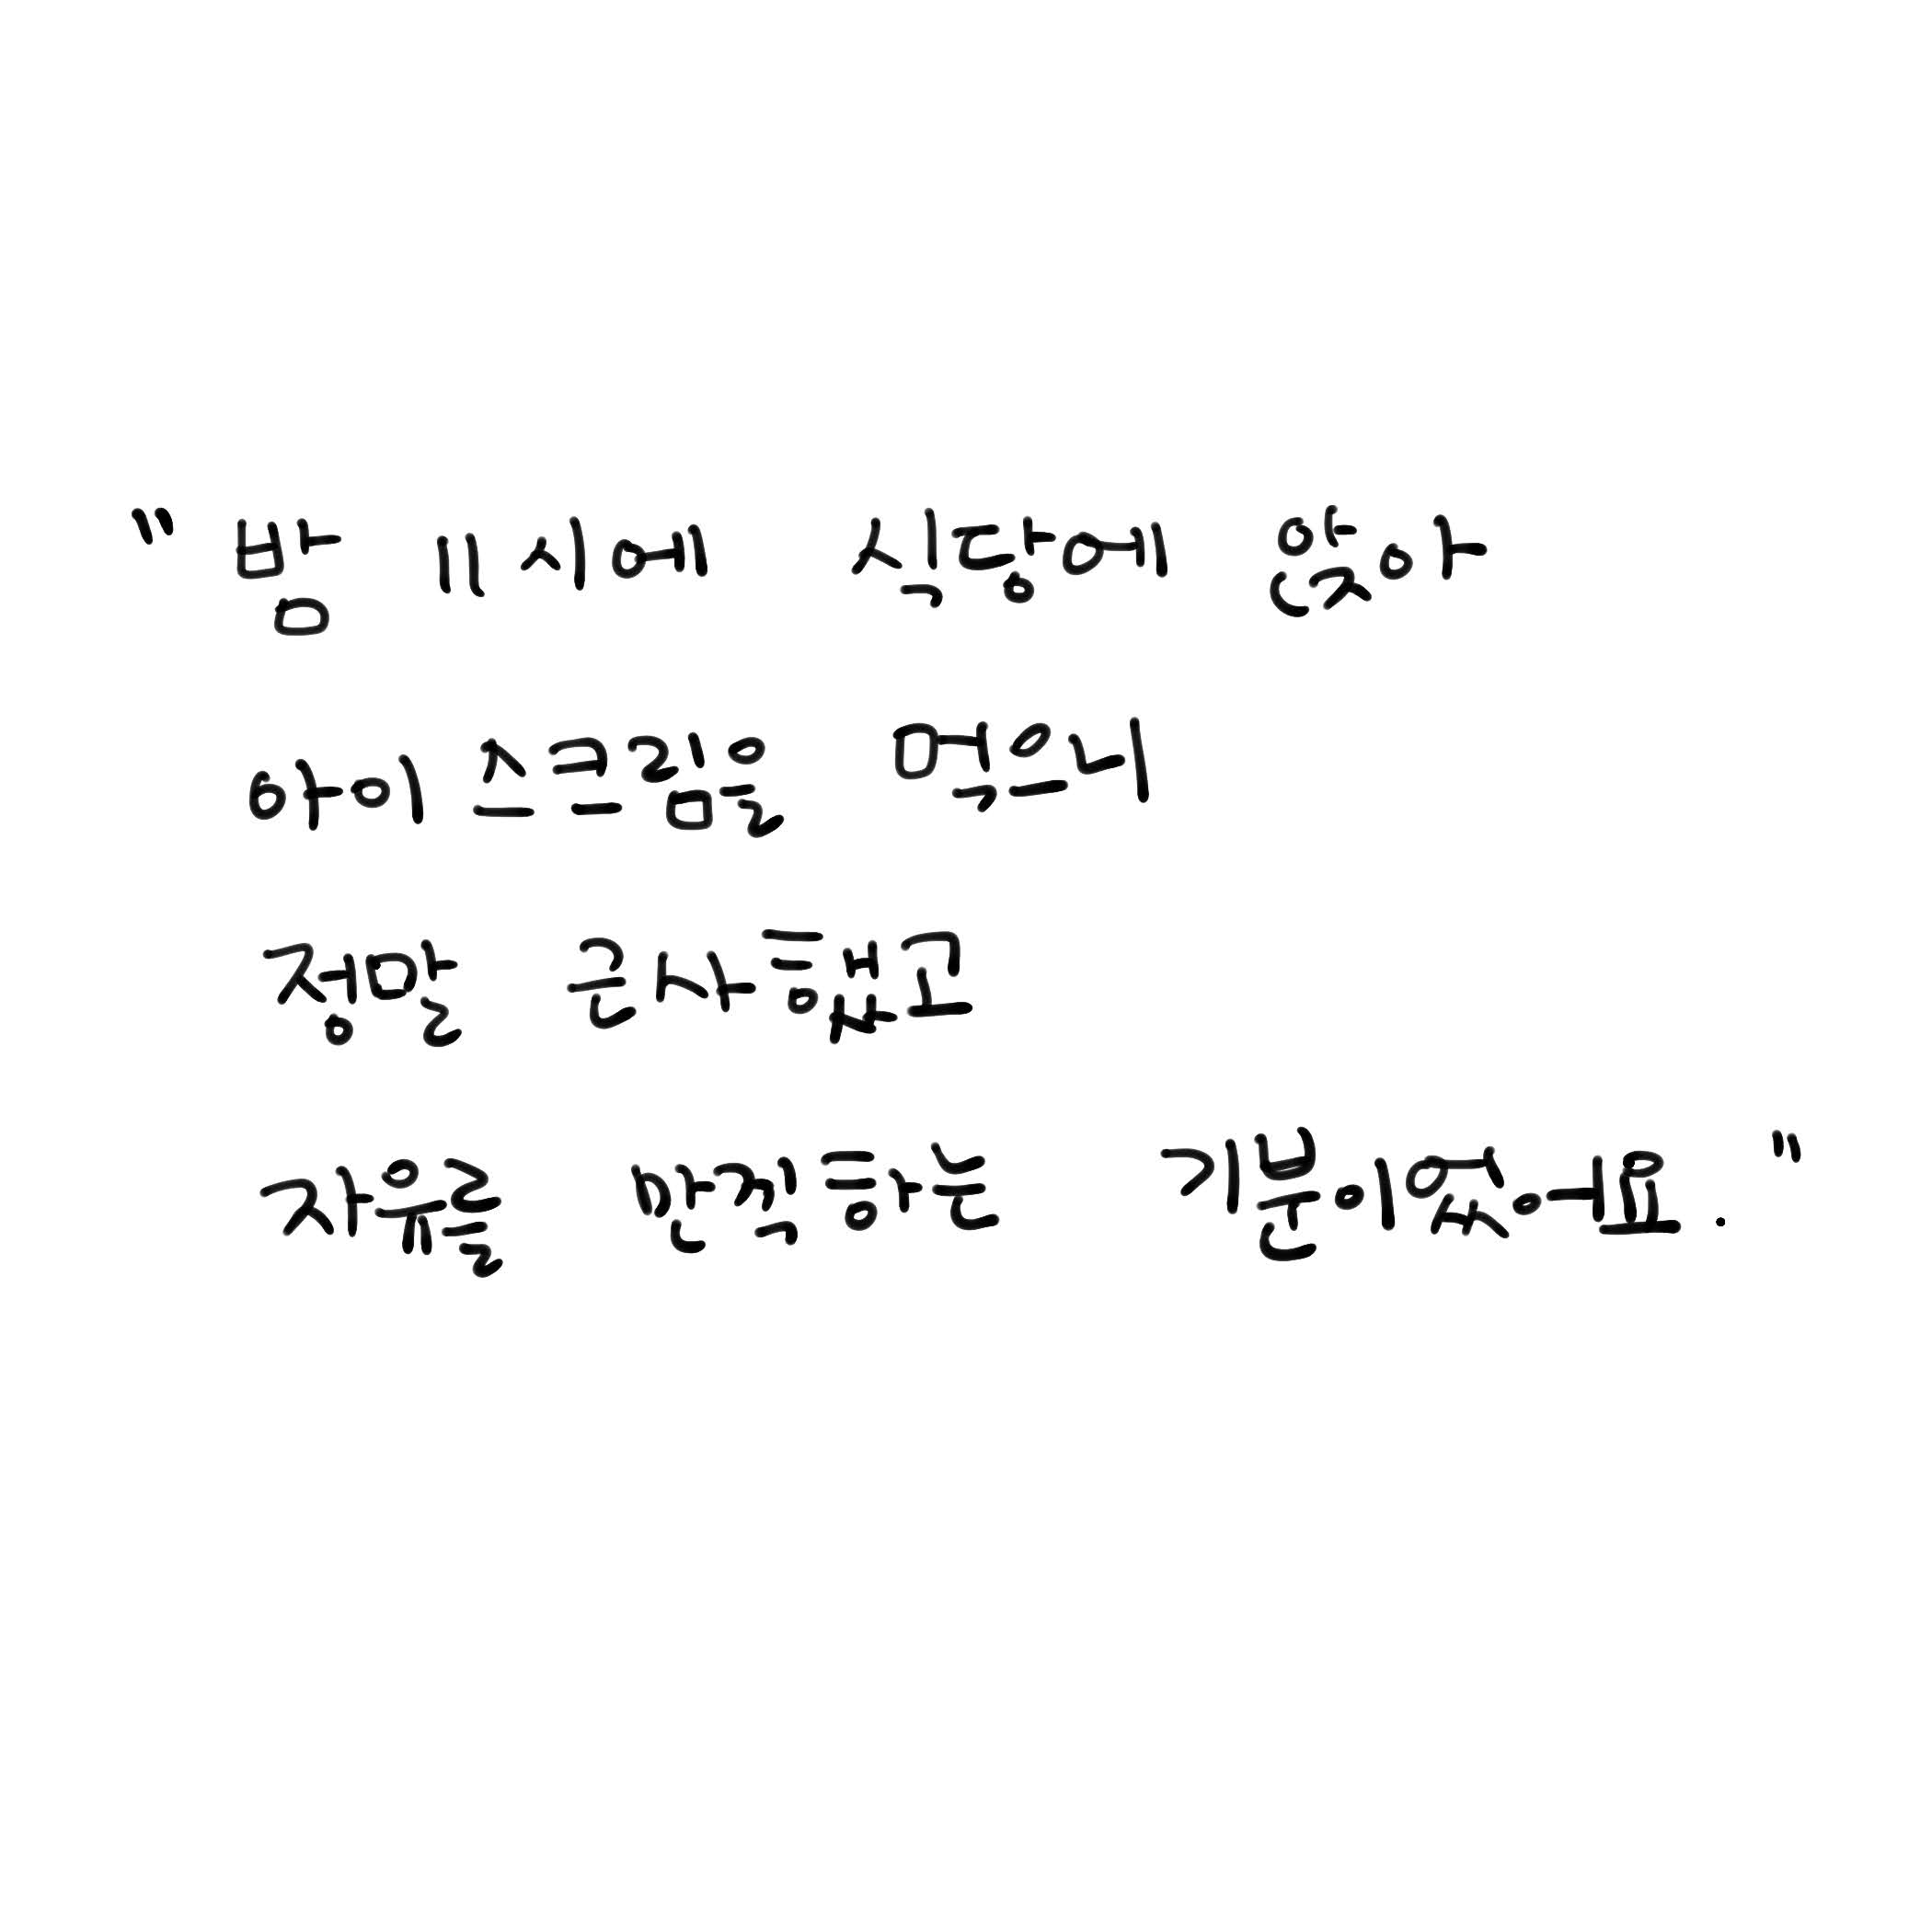 "밤 11시에 식당에 앉아
아이스크림을 먹으니
정말 근사했고
자유를 만끽하는 기분이었어요."